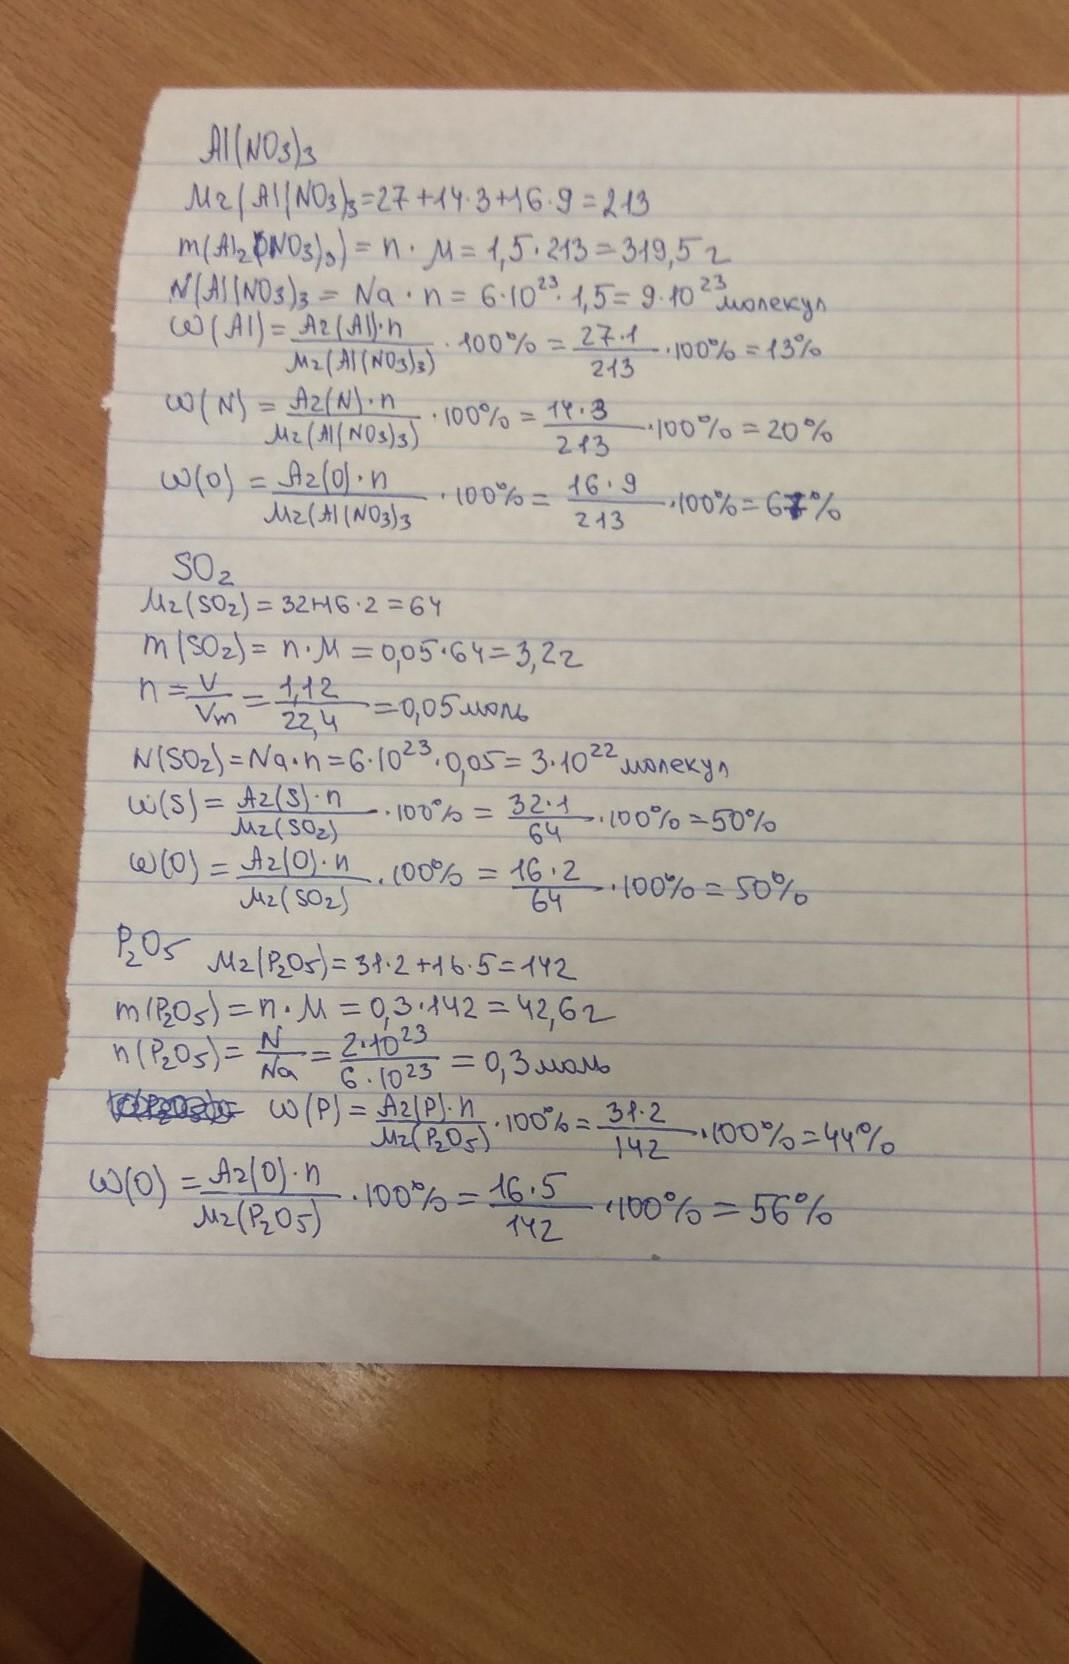 Al(NO3)3
Mr(Al(NO3)3=27+14·3+16·9=213
m(Al2(NO3)3)=n·M=1,5·213=319,5г
N(Al(NO3)3=Na·n=6·10²³·1,5=9·10²³молекул
ω(Al)=Ar(Al)·n/Mr(Al(NO3)3)·100%=27·1/213·100%=13%
ω(N)=Ar(N)·n/Mr(Al(NO3)3)·100%=14·3/213·100%=20%
ω(O)=Ar(O)·n/Mr(Al(NO3)3·100%=16·9/213·100%=67%
SO2
Mr(SO2)=32+16·2=64
m(SO2)=n·M=0,05·64=3,2г
n=V/Vm=1,12/22,4=0,05моль
N(SO2)=Na·n=6·10²³·0,05=3·10²²молекул
ω(S)=Ar(S)·n/Mr(SO2)·100%=32·1/64·100%=50%
ω(O)=Ar(O)·n/Mr(SO2)·100%=16·2/64·100%=50%
P2O5 Mr(P2O5)=31·2+16·5=142
m(P2O5)=n·M=0,3·142=42,6г
n(P2O5)=N/Na=2·10²³/6·10²³=0,3моль
ω(P)=Ar(P)·n/Mr(P2O5)·100%=31·2/142·100%=44%
ω(O)=Ar(O)·n/Mr(P2O5)·100%=16·5/142·100%=56%